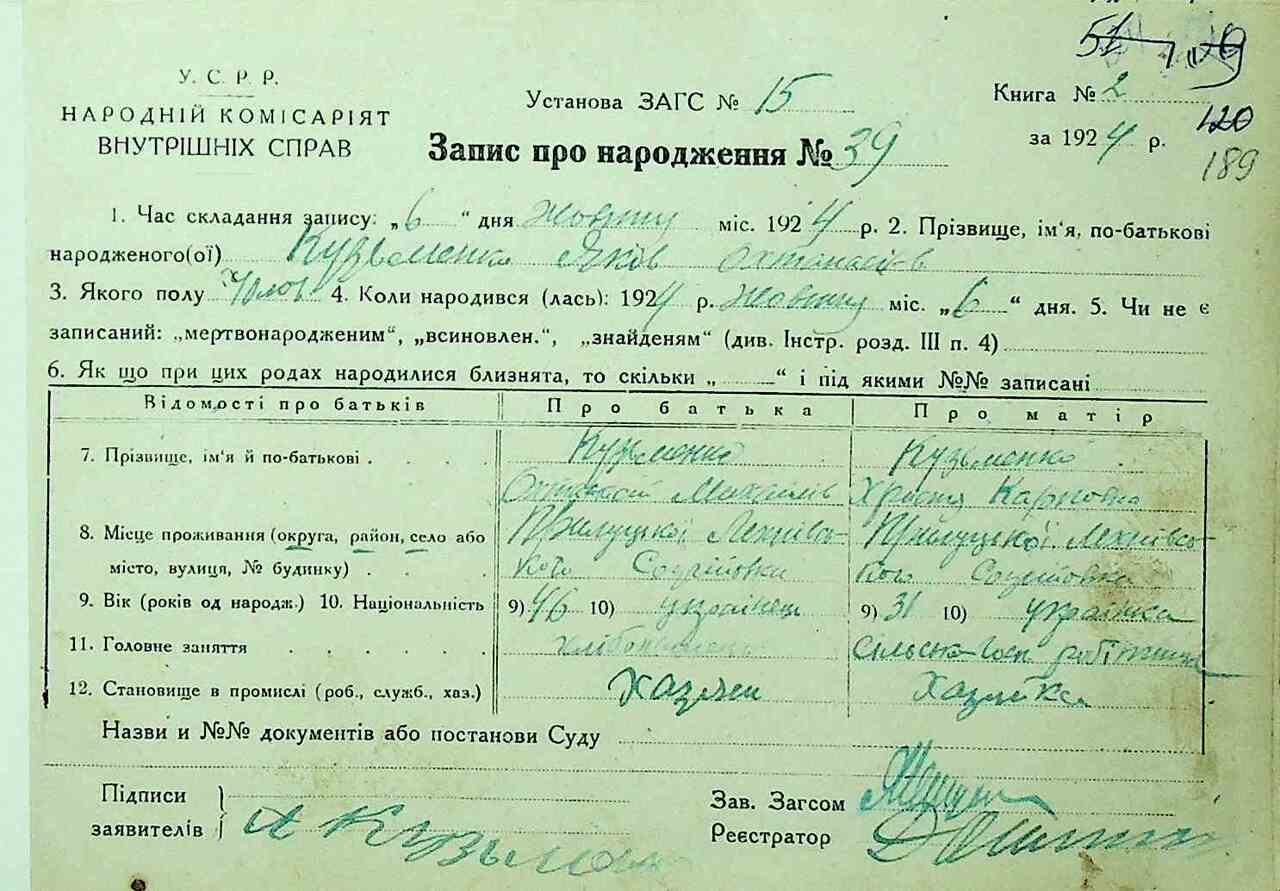 У. С. Р. Р.
НАРОДНІЙ КОМІСАРІЯТ
ВНУТРІШНІХ СПРАВ
Установа ЗАГС № 15
Запис про народження № 39
Книга № 2
за 1924 р.
120
189
1. Час складання запису: „6“ дня жовтня міс. 1924 р. 2. Прізвище, ім'я, по-батькові
народженого(ої) Кузьменко Яків Охтанасіїв
3. Якого полу Чолов. 4. Коли народився (лась): 1924 р. жовтня міс. „6“ дня. 5. Чи не є
записаний: „мертвонародженим“, „всиновлен.“, „знайденям“ (див. Інстр. розд. III п. 4)
6. Як що при цих родах народилися близнята, то скільки „ “ і під якими №№ записані
Відомості про батьків Про батька Про матір
7. Прізвище, ім'я й по-батькові . . . . Кузьменко Кузьменко
Михайлів Христя Карповна
8. Місце проживання (округа, район, село або Прилуцької Лехнівсь- Прилуцької Лехнівсь-
місто, вулиця, № будинку) . . . . кого кого
9. Вік (років од народж.) 10. Національність 9) 46 10) українець 9) 31 10) українка
11. Головне заняття . . . . . . хлібопашець Сільсько-Госп робітниця
12. Становище в промислі (роб., служб., хаз.) Хазяїн Хазяйка
Назви и №№ документів або постанови Суду
Підписи
заявителів А Кузьмен
Зав. Загсом
Реєстратор